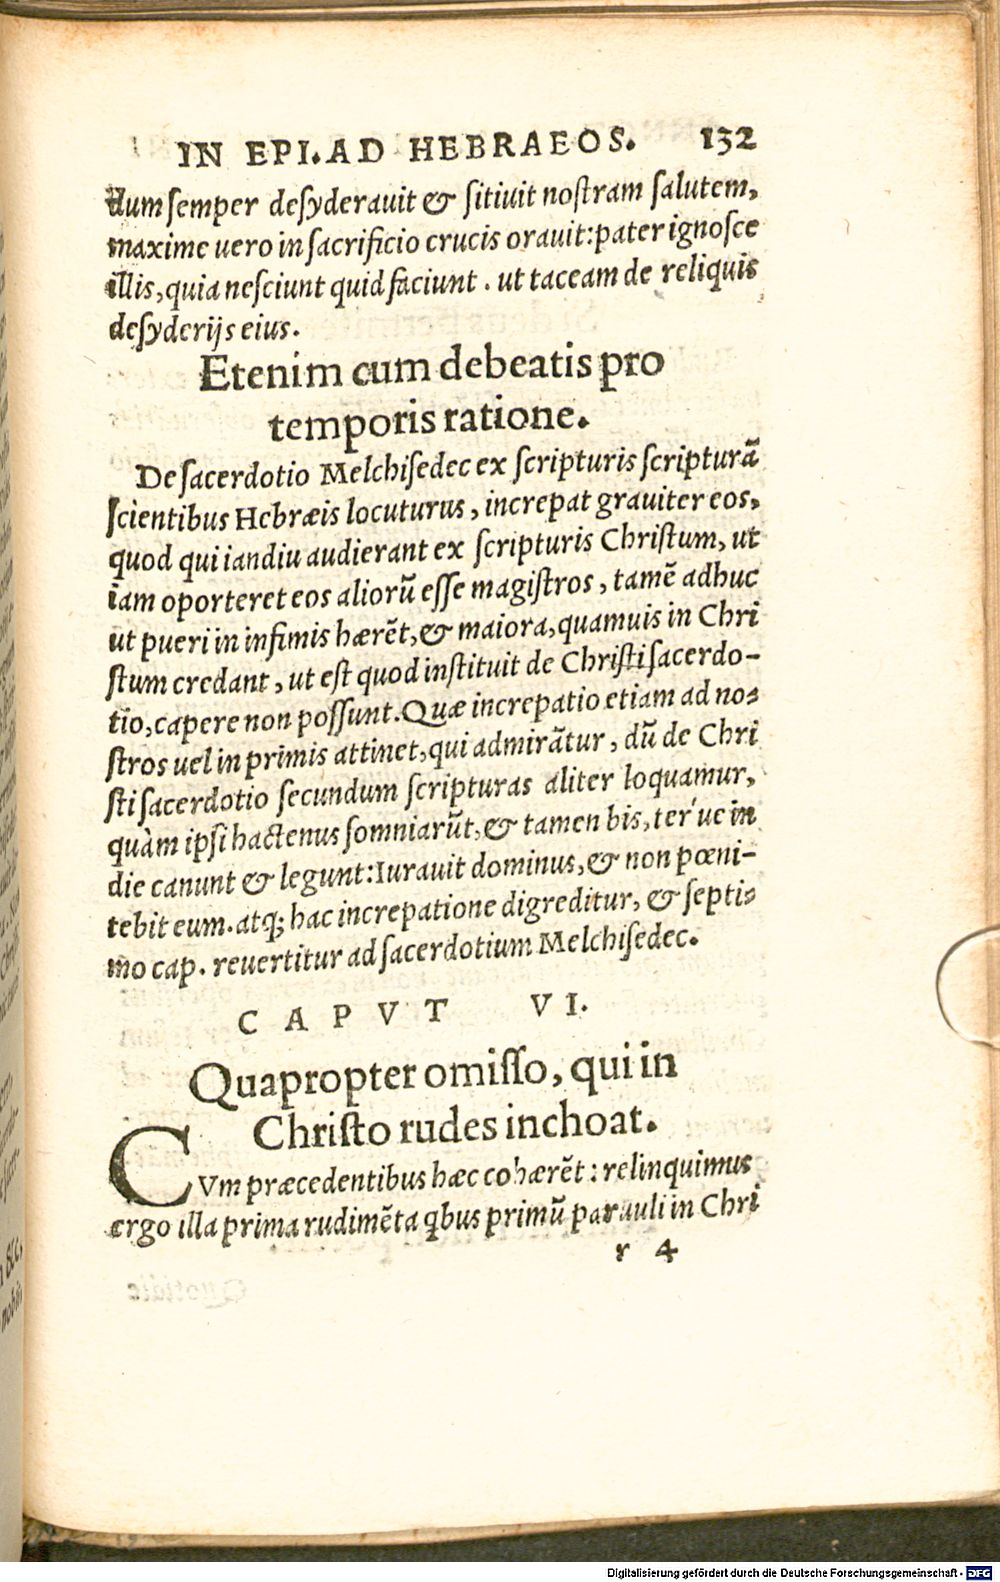 IN EPI.AD HEBRAEOS. 132
dum semper desyderauit & sitiuit nostram salutem,
maxime uero in sacrificio crucis orauit: pater ignosce
illis, quia nesciunt quid faciunt. ut taceam de reliquis
desyderijs eius.
Etenim cum debeatis pro
temporis ratione.
De sacerdotio Melchisedec ex scripturis scripturã
scientibus Hebræis locuturus, increpat grauiter eos,
quod qui iandiu audierant ex scripturis Christum, ut
iam oporteret eos aliorũ esse magistros, tamẽ adhuc
ut pueri in infimis hærẽt, & maiora, quamuis in Chri
stum credant, ut est quod instituit de Christi sacerdo-
tio, capere non possunt. Quæ increpatio etiam ad no-
stros uel in primis attinet, qui admirãtur, dũ de Chri
sti sacerdotio secundum scripturas aliter loquamur,
quàm ipsi hactenus somniarũt, & tamen bis, ter'ue in
die canunt & legunt: Iurauit dominus, & non pœni-
tebit eum. atq; hac increpatione digreditur, & septi-
mo cap. reuertitur ad sacerdotium Melchisedec.
CAPVT VI.
Quapropter omisso, qui in
Christo rudes inchoat.
CVm præcedentibus hæc cohærẽt: relinquimus
ergo illa prima rudimẽta qbus primũ paruuli in Chri
r 4
Digitalisierung gefördert durch die Deutsche Forschungsgemeinschaft - DFG